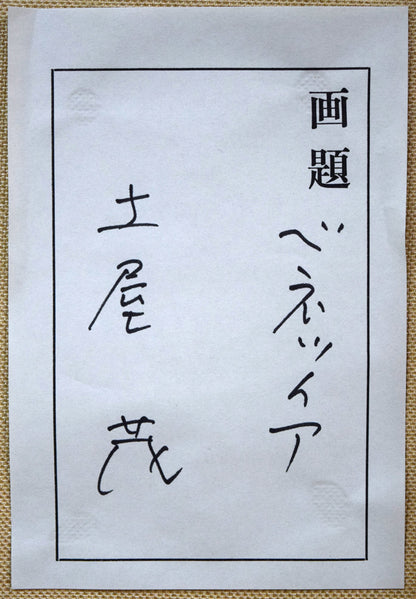 画題
ベネツィア
土屋 茂